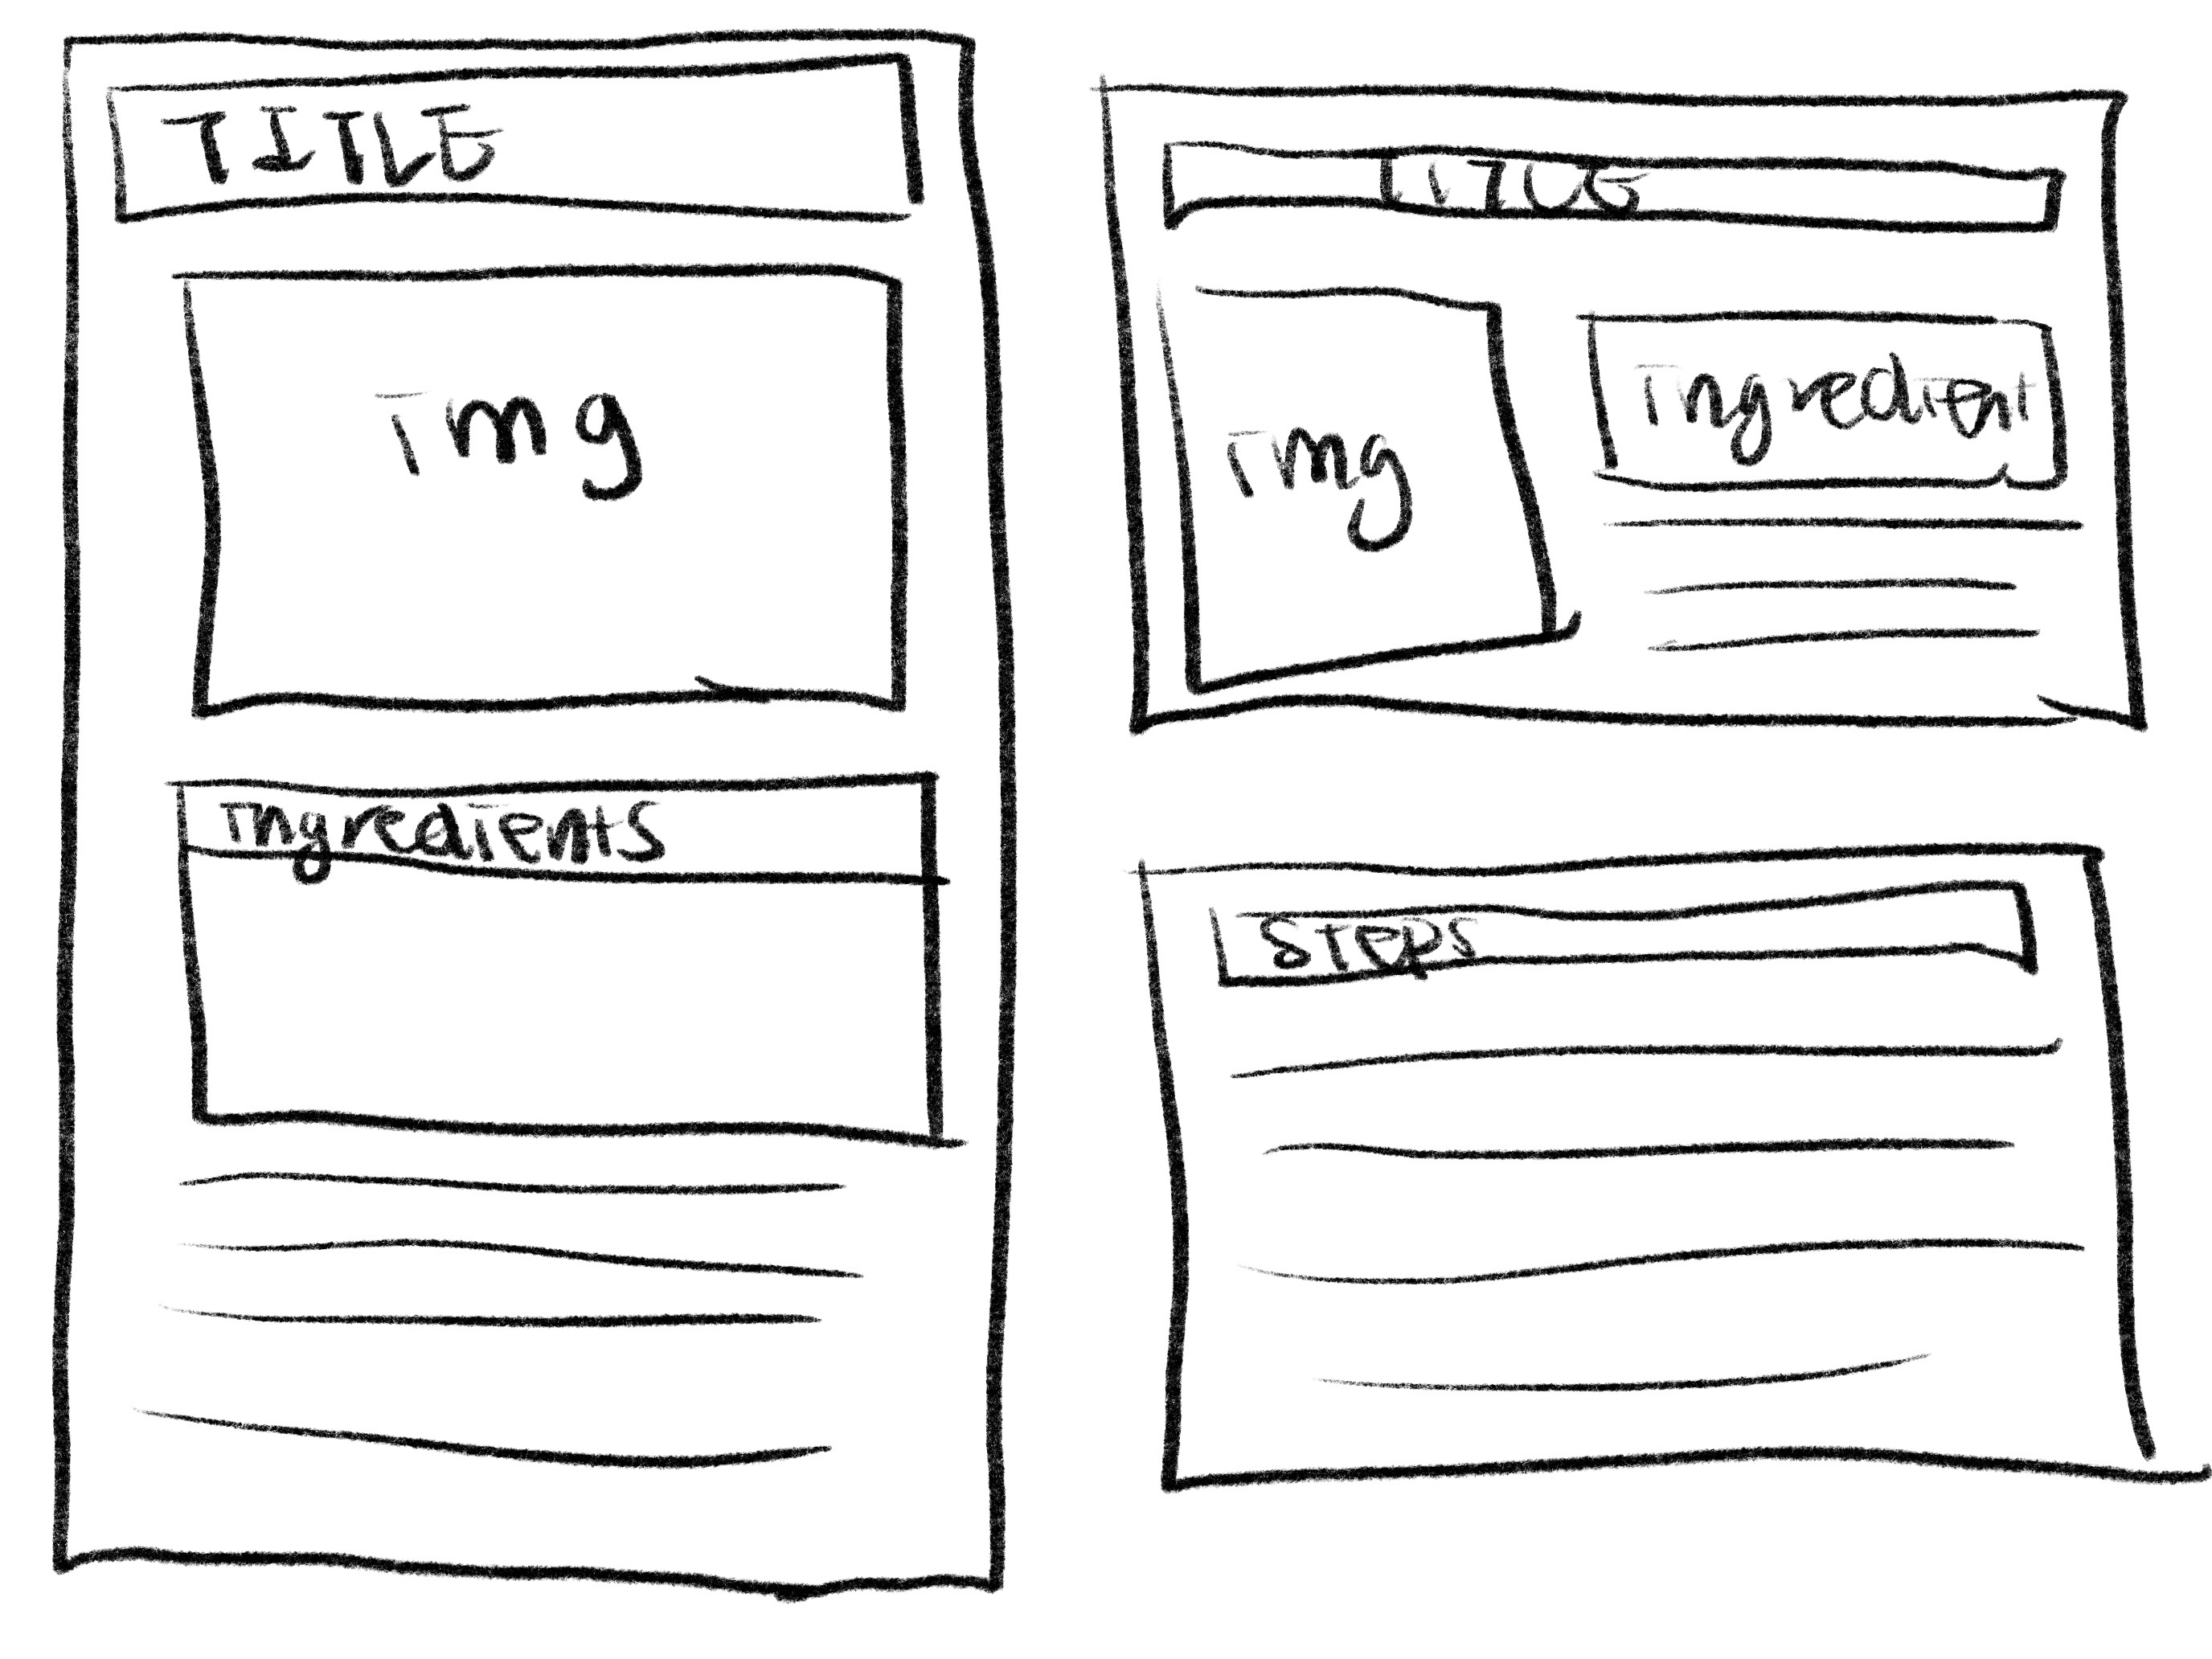 TITLE
Img
Ingredients
TITLE
Img
Ingredient
Steps